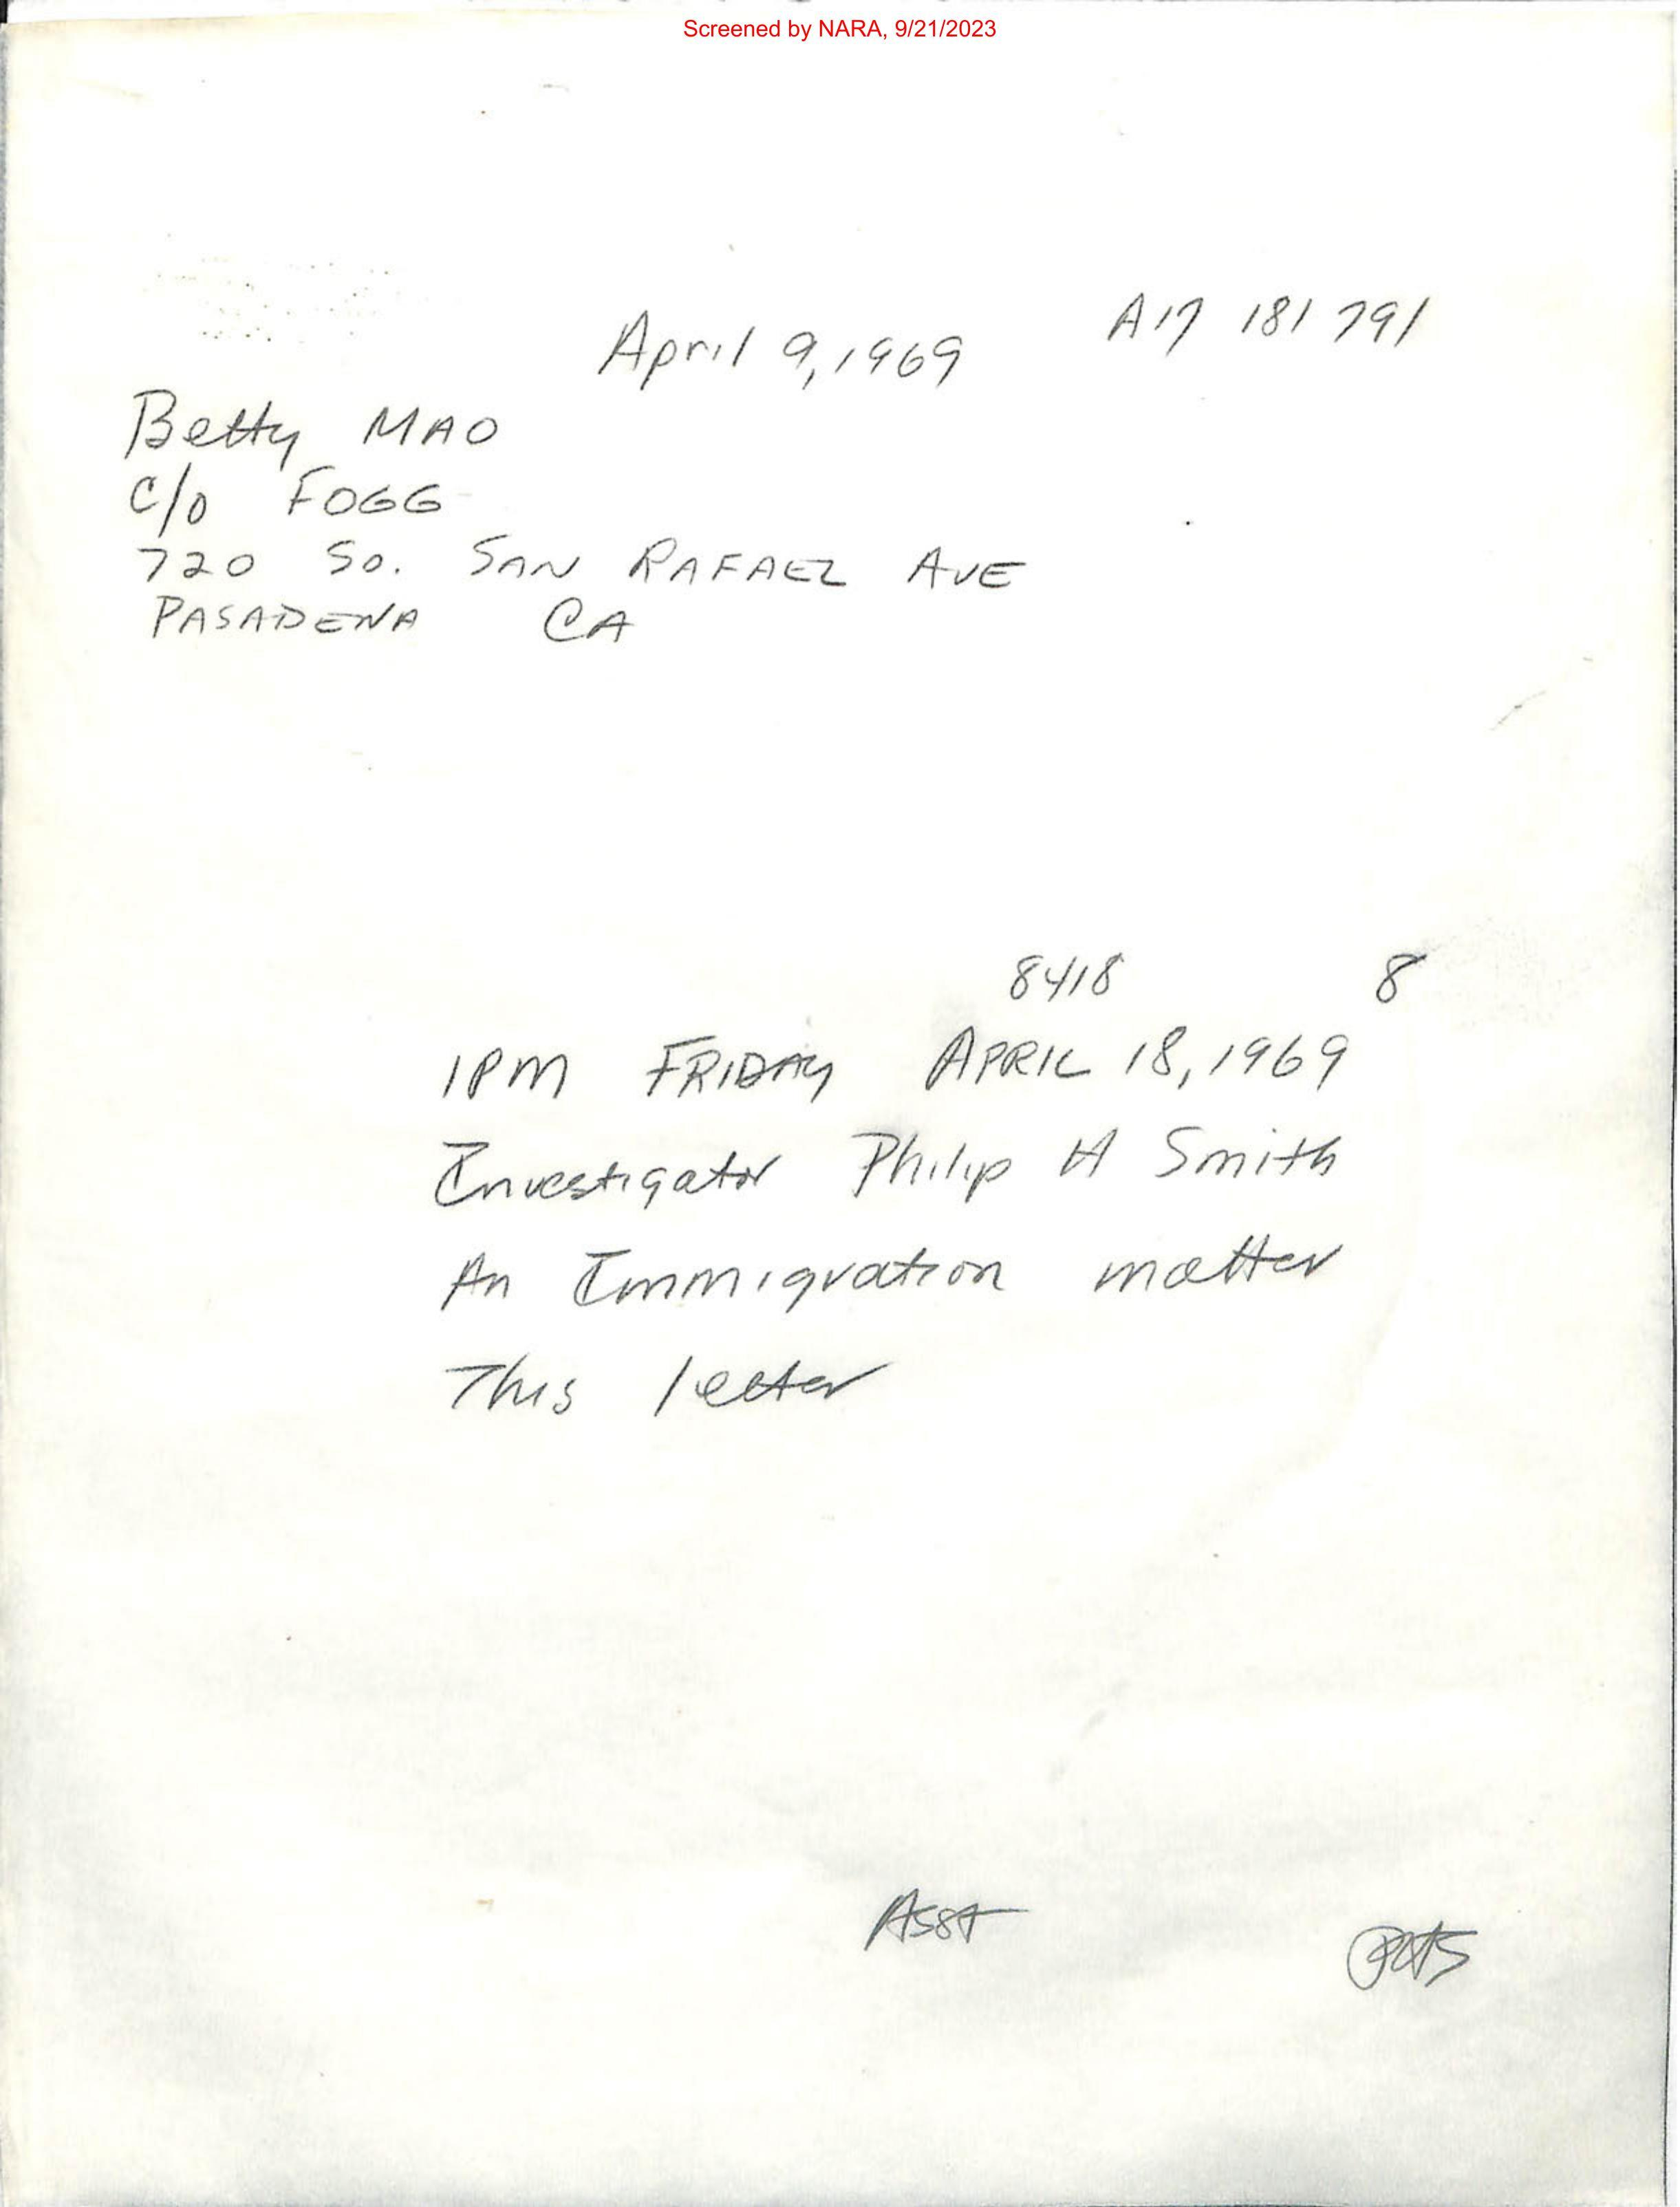 Screened by NARA, 9/21/2023
April 9, 1969 A17 181 791
Betty MAO
c/o FOGG
720 So. SAN RAFAEL AVE
PASADENA CA
8418 8
1PM FRIDAY APRIL 18, 1969
Investigator Philip H Smith
An Immigration matter
This letter
Asst
PHS